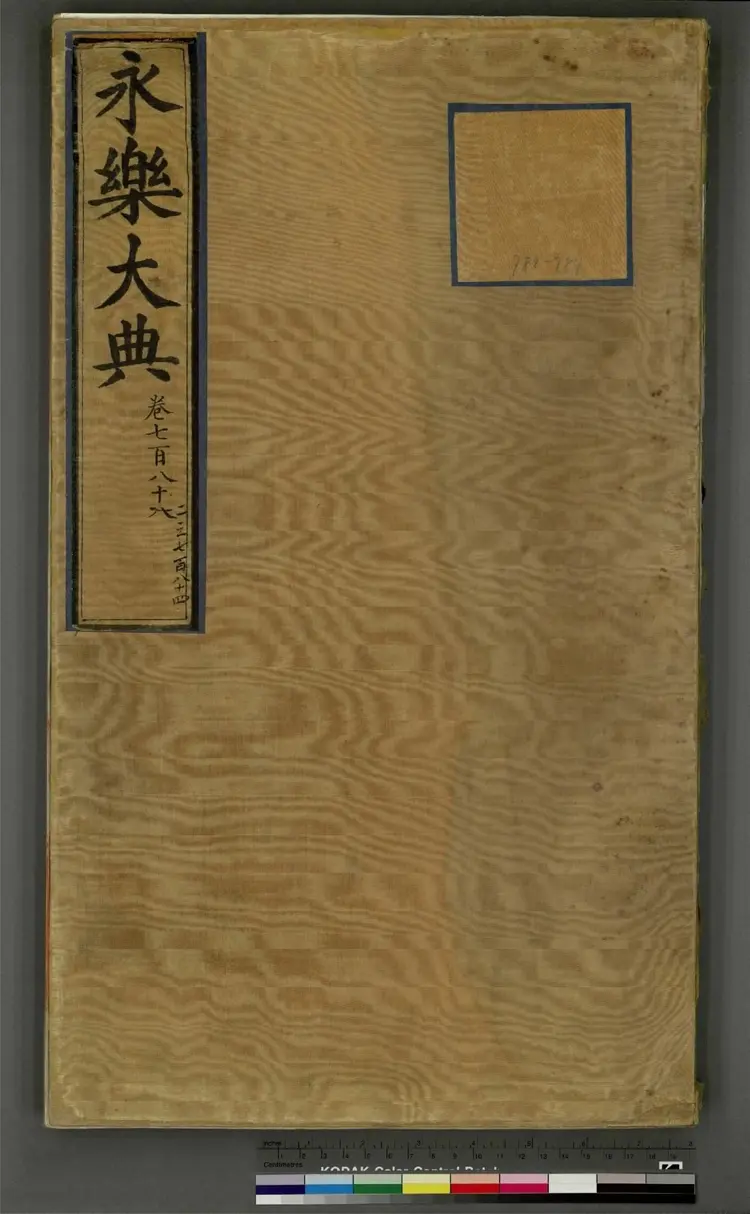 永樂大典
卷七百八十
二三七百八十四
inches
Centimetres
KODAK Color Control Patches